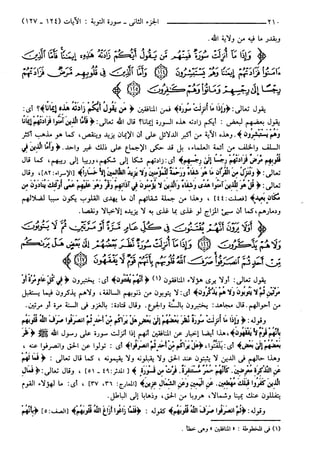 ٢١٠ ــــــ الجزء الثانى - سورة التوبة : الآيات (١٢٤ - ١٢٧)
وبقدر ما فيه من ولاية الله.
﴿ وَإِذَا مَا أُنْزِلَتْ سُورَةٌ فَمِنْهُمْ مَنْ يَقُولُ أَيُّكُمْ زَادَتْهُ هَذِهِ إِيمَانًا فَأَمَّا الَّذِينَ
آمَنُوا فَزَادَتْهُمْ إِيمَانًا وَهُمْ يَسْتَبْشِرُونَ ﴿١٢٤﴾ وَأَمَّا الَّذِينَ فِي قُلُوبِهِمْ مَرَضٌ فَزَادَتْهُمْ
رِجْسًا إِلَى رِجْسِهِمْ وَمَاتُوا وَهُمْ كَافِرُونَ ﴿١٢٥﴾ ﴾
يقول تعالى: ﴿وَإِذَا مَا أُنْزِلَتْ سُورَةٌ﴾ فمن المنافقين ﴿مَنْ يَقُولُ أَيُّكُمْ زَادَتْهُ هَذِهِ إِيمَانًا﴾؟ أى:
يقول بعضهم لبعض: أيكم زادته هذه السورة إيمانا؟ قال الله تعالى: ﴿فَأَمَّا الَّذِينَ آمَنُوا فَزَادَتْهُمْ إِيمَانًا
وَهُمْ يَسْتَبْشِرُونَ﴾. وهذه الآية من أكبر الدلائل على أن الإيمان يزيد وينقص، كما هو مذهب أكثر
السلف والخلف من أئمة العلماء، بل قد حكى الإجماع على ذلك غير واحد. ﴿وَأَمَّا الَّذِينَ فِي
قُلُوبِهِمْ مَرَضٌ فَزَادَتْهُمْ رِجْسًا إِلَى رِجْسِهِمْ﴾ أى: زادتهم شكا إلى شكهم، وريبا إلى ريبهم، كما قال
تعالى: ﴿وَنُنَزِّلُ مِنَ الْقُرْآنِ مَا هُوَ شِفَاءٌ وَرَحْمَةٌ لِلْمُؤْمِنِينَ وَلَا يَزِيدُ الظَّالِمِينَ إِلَّا خَسَارًا﴾ [الإسراء: ٨٢]، وقال
تعالى: ﴿قُلْ هُوَ لِلَّذِينَ آمَنُوا هُدًى وَشِفَاءٌ وَالَّذِينَ لَا يُؤْمِنُونَ فِي آذَانِهِمْ وَقْرٌ وَهُوَ عَلَيْهِمْ عَمًى أُولَئِكَ يُنَادَوْنَ مِنْ
مَكَانٍ بَعِيدٍ﴾ [فصلت: ٤٤]، وهذا من جملة شقائهم أن ما يهدى القلوب يكون سببا لضلالهم
ودمارهم، كما أن سيئ المزاج لو غذى بما غذى به لا يزيده إلاخبالا ونقصا.
﴿ أَوَلَا يَرَوْنَ أَنَّهُمْ يُفْتَنُونَ فِي كُلِّ عَامٍ مَرَّةً أَوْ مَرَّتَيْنِ ثُمَّ لَا يَتُوبُونَ وَلَا
هُمْ يَذَّكَّرُونَ ﴿١٢٦﴾ وَإِذَا مَا أُنْزِلَتْ سُورَةٌ نَظَرَ بَعْضُهُمْ إِلَى بَعْضٍ هَلْ يَرَاكُمْ مِنْ
أَحَدٍ ثُمَّ انْصَرَفُوا صَرَفَ اللَّهُ قُلُوبَهُمْ بِأَنَّهُمْ قَوْمٌ لَا يَفْقَهُونَ ﴿١٢٧﴾ ﴾
يقول تعالى: أولا يرى هؤلاء المنافقون (١) ﴿أَنَّهُمْ يُفْتَنُونَ﴾ أى: يختبرون ﴿فِي كُلِّ عَامٍ مَرَّةً أَوْ
مَرَّتَيْنِ ثُمَّ لَا يَتُوبُونَ وَلَا هُمْ يَذَّكَّرُونَ﴾ أى: لا يتوبون من ذنوبهم السالفة، ولاهم يذكرون فيما يستقبل
من أحوالهم. قال مجاهد: يختبرون بالسنَة والجوع. وقال قتادة: بالغزو فى السنة مرة أو مرتين.
وقوله: ﴿وَإِذَا مَا أُنْزِلَتْ سُورَةٌ نَظَرَ بَعْضُهُمْ إِلَى بَعْضٍ هَلْ يَرَاكُمْ مِنْ أَحَدٍ ثُمَّ انْصَرَفُوا صَرَفَ اللَّهُ قُلُوبَهُمْ
بِأَنَّهُمْ قَوْمٌ لَا يَفْقَهُونَ﴾، هذا أيضا إخبار عن المنافقين أنهم إذا أنزلت سورة على رسول الله ﷺ ﴿نَظَرَ
بَعْضُهُمْ إِلَى بَعْضٍ﴾ أى: تلفتوا، ﴿هَلْ يَرَاكُمْ مِنْ أَحَدٍ ثُمَّ انْصَرَفُوا﴾ أى: تولوا عن الحق وانصرفوا عنه،
وهذا حالهم فى الدين لا يثبتون عند الحق ولا يقبلونه ولا يقيمونه، كما قال تعالى: ﴿فَمَا لَهُمْ
عَنِ التَّذْكِرَةِ مُعْرِضِينَ. كَأَنَّهُمْ حُمُرٌ مُسْتَنْفِرَةٌ. فَرَّتْ مِنْ قَسْوَرَةٍ﴾ [المدثر: ٤٩ - ٥١]، وقال تعالى: ﴿فَمَالِ
الَّذِينَ كَفَرُوا قِبَلَكَ مُهْطِعِينَ. عَنِ الْيَمِينِ وَعَنِ الشِّمَالِ عِزِينَ﴾ [المعارج: ٣٦، ٣٧]، أى: ما لهؤلاء القوم
يتقللون عنك يمينا وشمالا، هروبا من الحق، وذهابا إلى الباطل.
وقوله: ﴿ثُمَّ انْصَرَفُوا صَرَفَ اللَّهُ قُلُوبَهُمْ﴾ كقوله: ﴿فَلَمَّا زَاغُوا أَزَاغَ اللَّهُ قُلُوبَهُمْ﴾ [الصف: ٥] ﴿بِأَنَّهُمْ
(١) فى المخطوطة: « المنافقين » وهى خطأ.